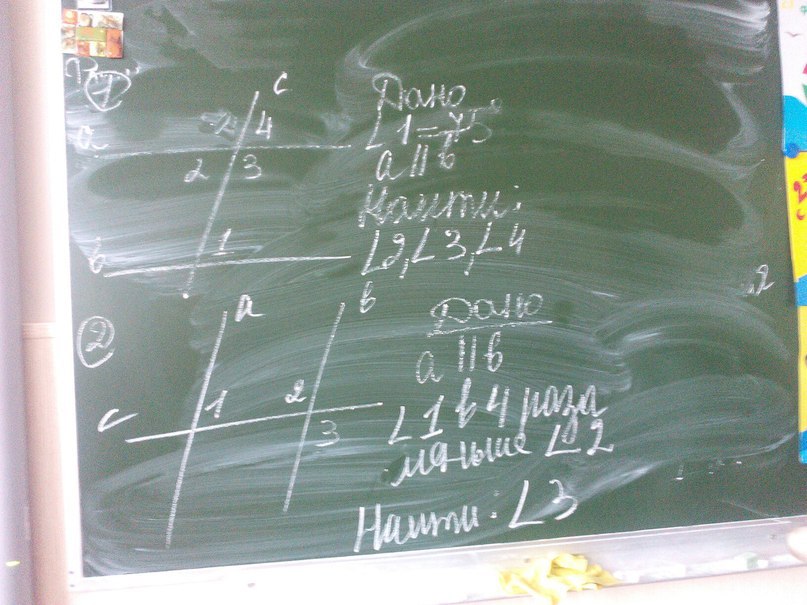 1
c
a
4
2
3
1
b
Дано
∠1=75°
a||b
Найти:
∠2,∠3,∠4
2
a
b
c
1
2
3
Дано
a||b
∠1 в 4 раза
меньше ∠2
Найти: ∠3